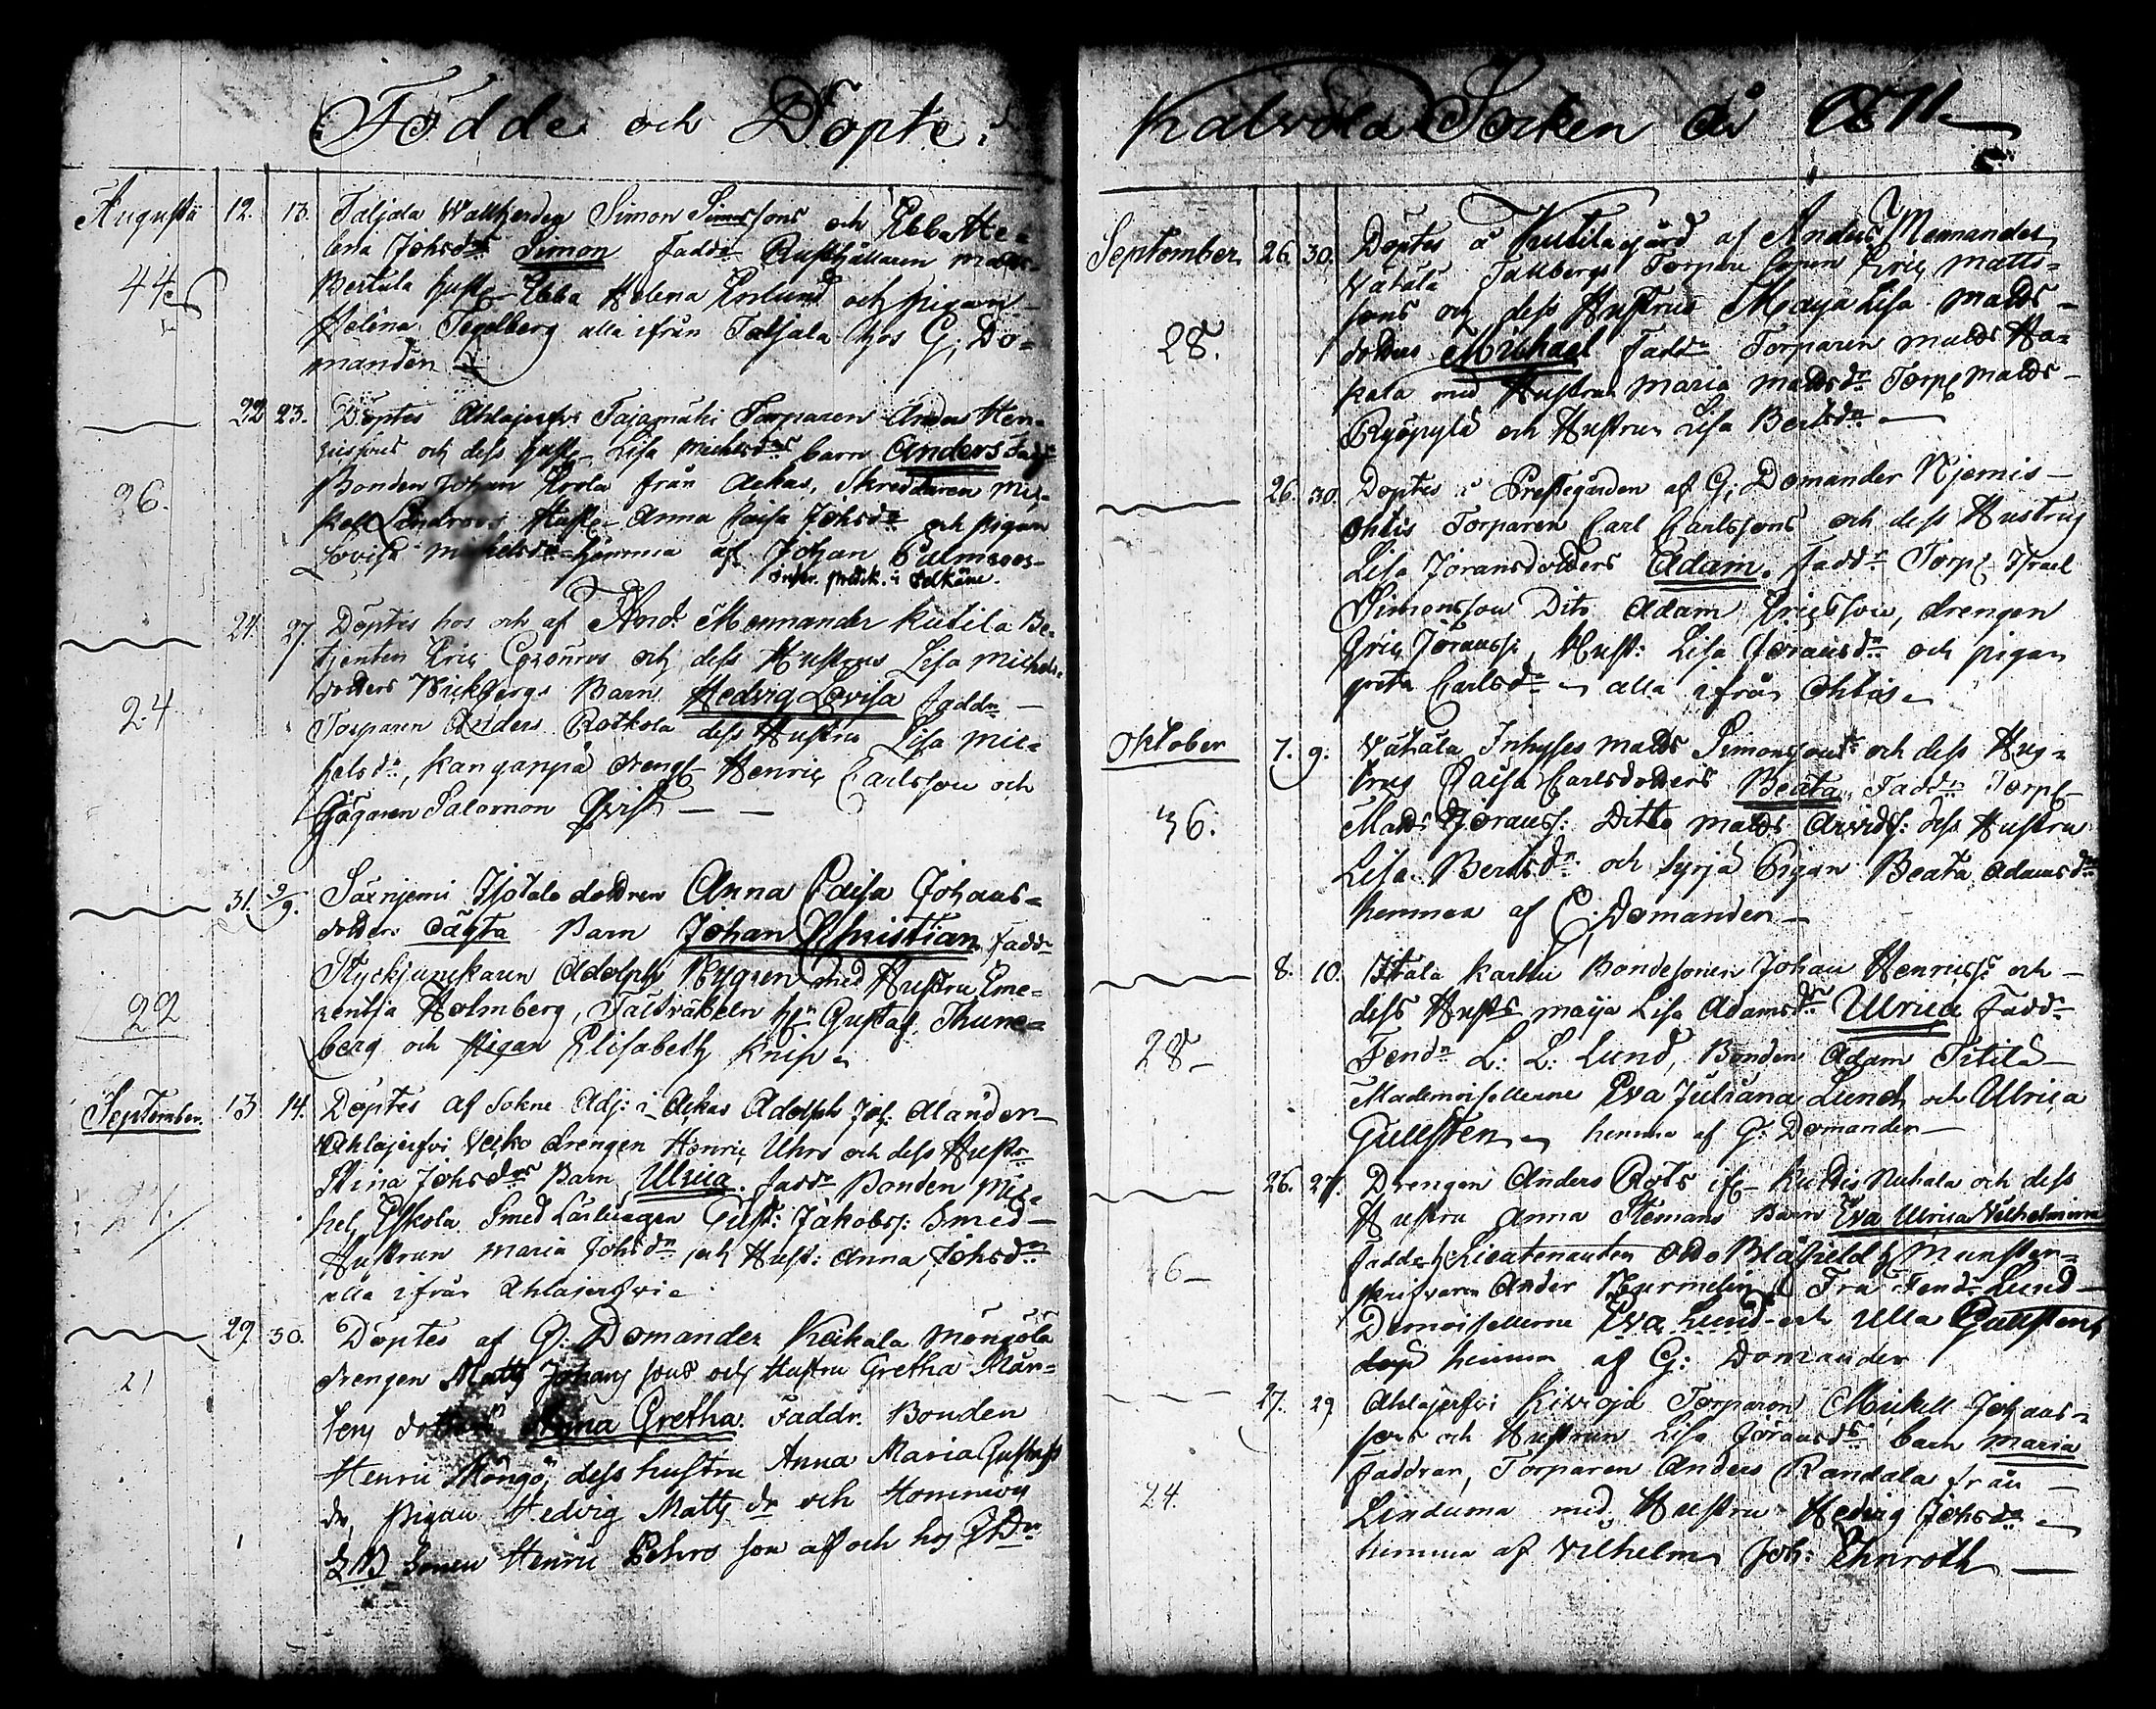 Födde och Döpte i
Augustii 12. 13. Taljala Wallherden Simon Simonssons och Ebba He-
lena Johsdrs Simon Faddr Rusthållaren Matts
Bertula hust Ebba Helena Enlund och pigan
Helena Tegelberg alla ifrån Taljala hos G: Do-
mander
44
22 23. Döptes Ahlajerfvi Torparen Anders Hen-
ricssons och dess hust Lisa Michelsdrs barn Anders Fadd
Bonden Johan från Ackas, Skreddaren Mic-
kel Lindroos Hust Anna Caisa Johsdr och pigan
Lovisa Michelsdr hemma af Johan Palmroos
26.
24. 27 Döptes hos och af And: Mennander Kutila Be-
tjenten Eric och dess Hustrus Lisa Michels-
dotters Wickbergs Barn Hedvig Lovisa faddr
Torparen Anders Rotkola dess Hustru Lisa Mic-
helsdr, Kanganpä dreng Henric Carlsson och
Jägaren Salomon Qvist
24
31. 2/9. Särnjemi Isotalo dottren Anna Caisa Johans-
dotters oägta Barn Johan Christian Faddr
Styckjunkaren Adolph Nygren med Hustru Eme-
rentsja Holmberg, Fältväbeln Hr Gustaf Thune-
berg och Pigan Elisabeth Knip
22
September. 13 14. Döptes af Sokne Adj: i Ackas Adolph Joh: Alander
Ahlajerfvi Veiko drengen Henric Uhro och dess Hustr
Stina Johsdrs Barn Ulrica. faddr Bonden Mic-
hel Eskola Smed Lärlingen Gust: Jakobss: Smed
Hustrun Maria Johsdr och Hust: Anna Johsdr
alla ifrån Ahlajerfvi
29. 30. Döptes af G: Domander Keikala Möngölä
drengen Matts Johans sons och Hustru Gretha Mår-
tens dotters Anna Gretha. Faddr. Bonden
Henric Möngö, dess hustru Anna Maria Gustafs
dr, Pigan Hedvig Matts dr och
Sonen Henric Pehrs son af och hos G Dr
21
Kalvola Socken år 1811.
September 26. 30. Döptes å Kutilagård af Anders Mennander
Vatala Fallbergs Torpare sonen Eric Matts-
sons och dess Hustrus Maja Lisa Matts-
dotters Michael Faddr Torparen Matts Ha-
kala med Hustrun Maria Mattsdr Torp Matts
Ryöpylä och Hustrun Lisa Bertsdr
28.
26. 30. Döptes i Prestegården af G: Domander Njemis
Ohtis Torparen Carl Carlssons och dess Hustrus
Lisa Joransdotters Adam. Faddr Torp Israel
Simonsson Dito Adam Ericsson, drengen
Eric Joranss: Hust: Lisa Joransdr och pigan
greta Carlsdr alla ifrån Ohtis
Oktober 7. 9. Vatala Inhyses Matts Simonssons och dess Hus-
trus Caisa Carlsdotters Beata, Faddr Torp
Matts Joranss: Ditto Matts Arvids: dess Hustru
Lisa Bertsdr och Syrjä Pigan Beata Adamsdr
hemma af G: Domander
36.
8. 10. Ittala Karhu Bondesonen Johan Henricss: och
dess Husts Maija Lisa Adamsdr Ulrica Faddr
Fendr L: L: Lund, Bonden Adam Titilä
Mademoisellerne Eva Juliana Lund och Ulrica
Gullsten hemma af G: Domander
28
26. 27. Drengen Anders Rots ifr Kutis Nuhala och dess
Hustru Anna Stemans Barn Eva Ulrica Vilhelmina
Faddr Lieutenanten Otto Blåfield Munster-
skrifvaren Ander Nurmelin Fru Fendr Lund
Demoisellerne Eva Lund och Ulla Gullstens
hemma af G: Domander
27. 29 Ahlajerfvi Kivioja Torparen Mickell Johans-
sons och Hustrun Lisa Joransdrs barn Maria
Faddrar, Torparen Anders Randala från
Linduma med Hustru Hedvig Johsdr
hemma af Vilhelm Joh: Ehnroth
24.